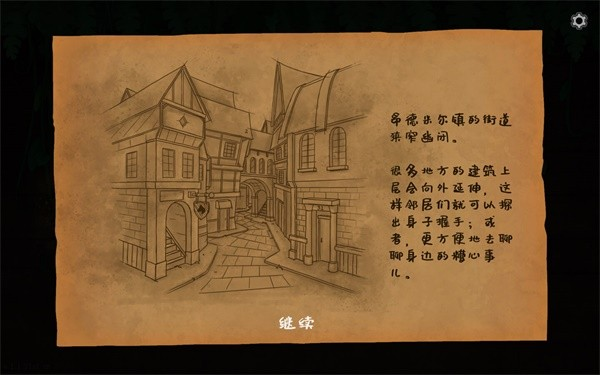 德米尔镇的街道
狭窄幽闭。
很多地方的建筑上
层会向外延伸，这
样邻居们就可以探
出身子握手；或
者，更方便地去聊
聊身边的糟心事
儿。
继续